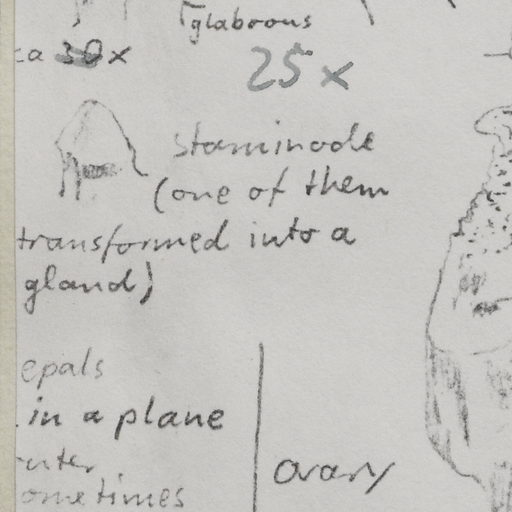 glabrous
ca 30x
25 x
staminode
(one of them
transformed into a
gland)
epals
in a plane
ometimes
ovary